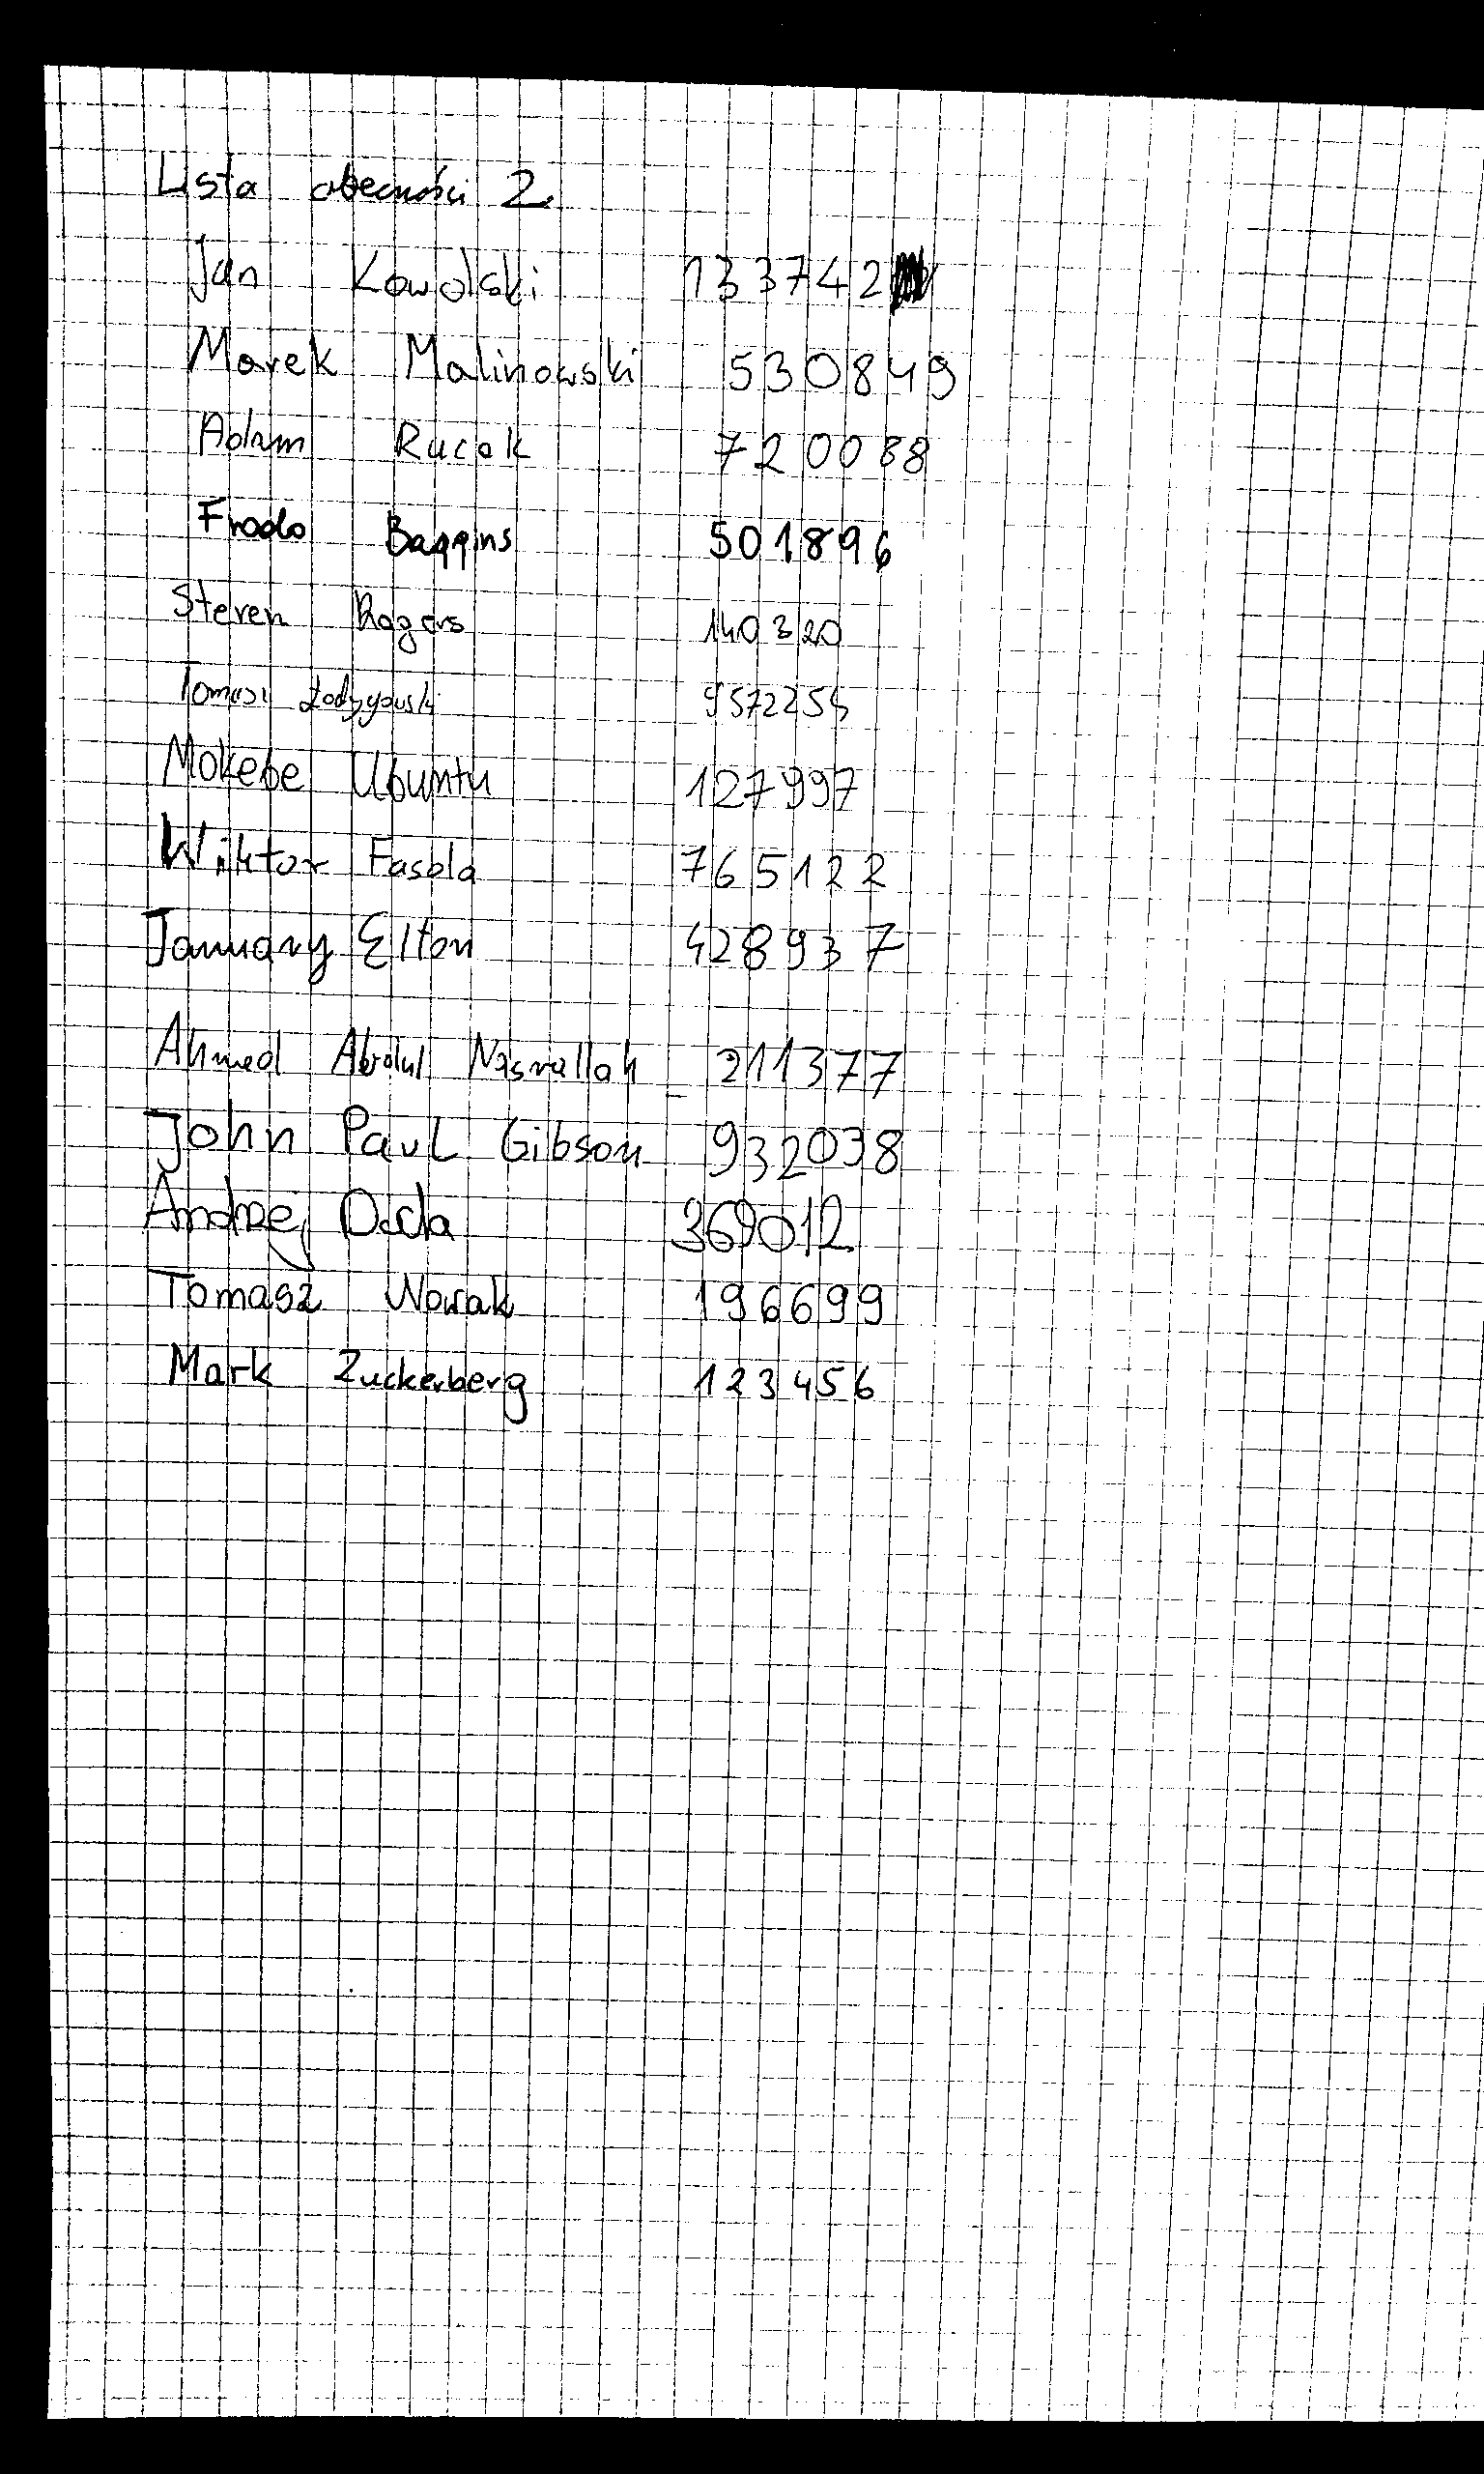 Lista obecności 2.
Jan Kowalski 133742
Marek Malinowski 530849
Adam Rucok 720088
Frodo Baggins 501896
Steven Rogers 140320
Tomasz 957225
Mokebe Ubuntu 127997
Wiktor Fasola 765122
January Elton 428937
Ahmed Abdul Nasrallah 211377
John Paul Gibson 932038
Andrzej Duda 369012
Tomasz Nowak 196699
Mark Zuckerberg 123456